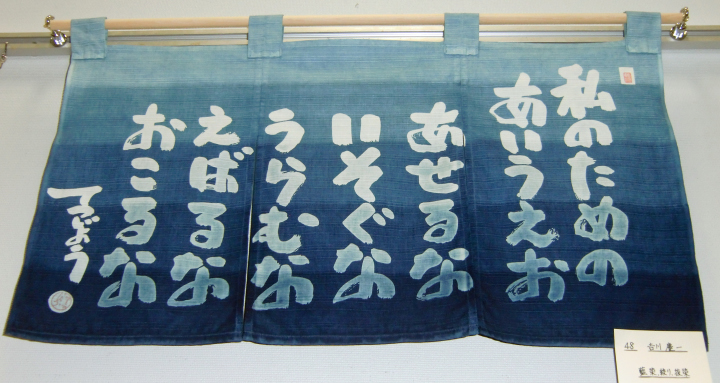 私のための
あいうえお
あせるな
いそぐな
うらむな
えばるな
おこるな
てつじょう
48
藍染、絞り、抜染